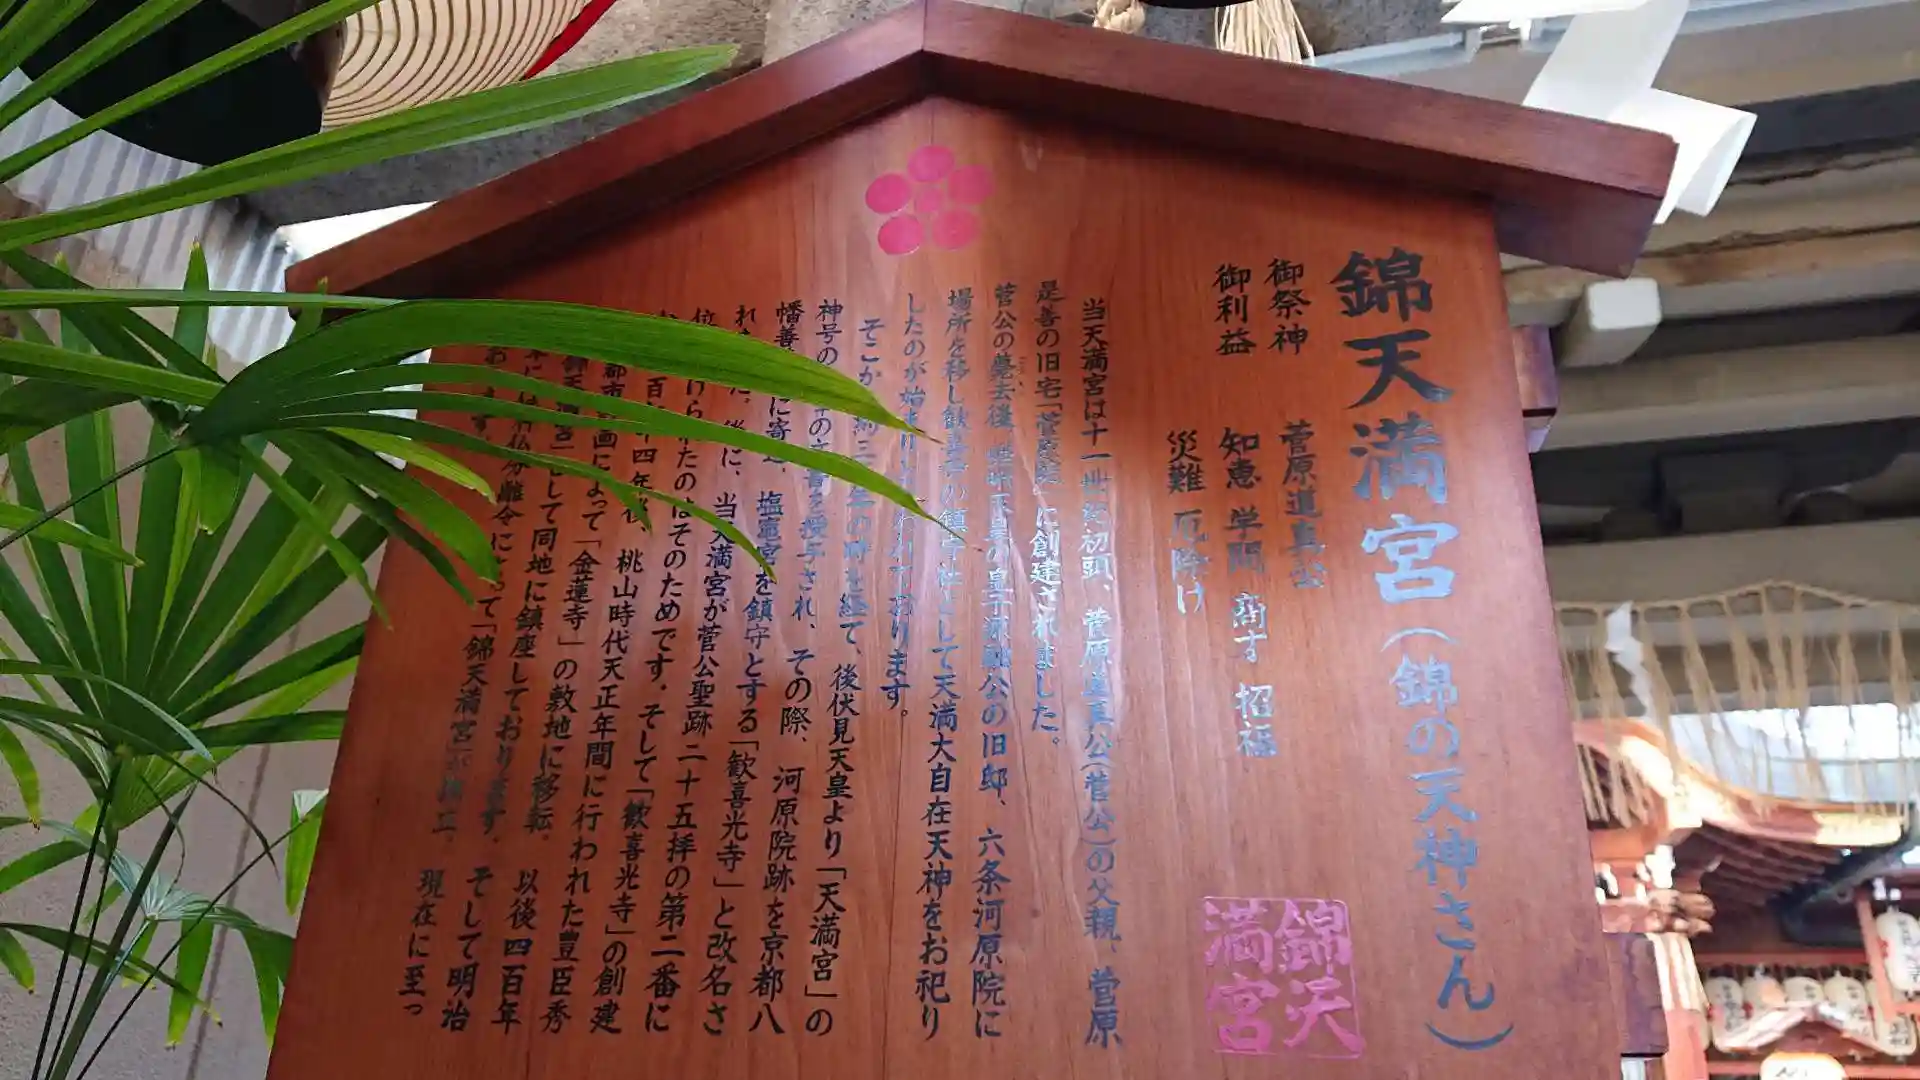 錦天満宮(錦の天神さん)
御祭神 菅原道真公
御利益 知恵 学問 商才 招福
災難 厄除け
当天満宮は十一世紀初頭、菅原道真公(菅公)の父親、菅原
是善の旧宅「菅原院」に創建されました。
菅公の薨去後、嵯峨天皇の皇子源融公の旧邸、六条河原院に
場所を移し歓喜寺の鎮守社として天満大自在天神をお祀り
したのが始まりといわれております。
そこから約三 年の時を経て、後伏見天皇より「天満宮」の
神号の 書を授与され、その際、河原院跡を京都八
幡善 に寄 、塩竈宮を鎮守とする「歓喜光寺」と改名さ
れ た。後に、当天満宮が菅公聖跡二十五拝の第二番に
位 けられたのはそのためです。そして「歓喜光寺」の創建
百 十四年後、桃山時代天正年間に行われた豊臣秀
都市 画によって「金蓮寺」の敷地に移転。以後四百年
錦天満宮」として同地に鎮座しております。そして明治
には神仏分離令によって「錦天満宮」が 現在に至っ
おります。
錦天
満宮